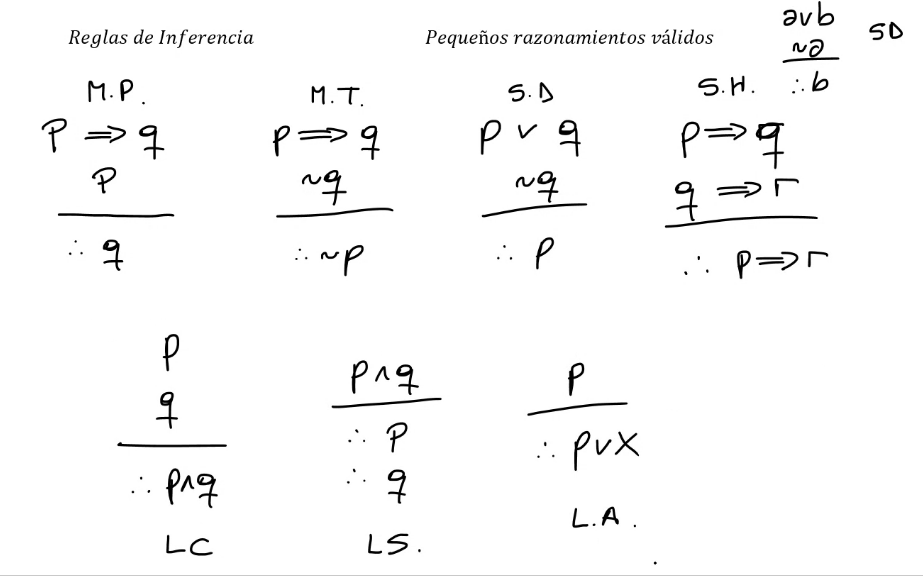 Reglas de Inferencia
Pequeños razonamientos válidos
a∨b
~a
∴ b
SD
M.P.
P ⟹ q
P
∴ q
M.T.
p ⟹ q
~q
∴ ~p
S.D
p ∨ q
~q
∴ p
S.H.
p ⟹ q
q ⟹ r
∴ p ⟹ r
p
q
∴ p∧q
LC
p∧q
∴ p
∴ q
LS.
p
∴ p∨x
L.A.